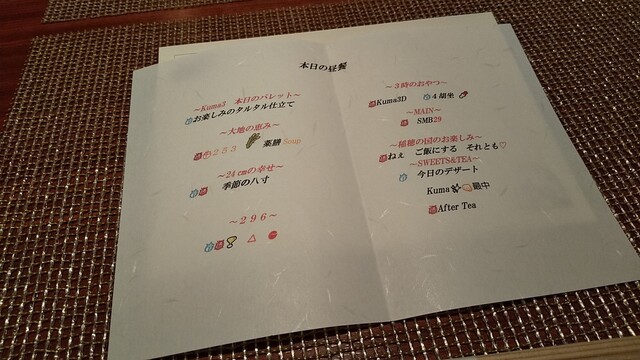 本日の昼餐
～Kuma3 本日のパレット～
お楽しみのタルタル仕立て
～大地の恵み～
253 薬膳 Soup
～24cmの幸せ～
季節の八寸
～296～
～3時のおやつ～
Kuma3D 4胡坐
～MAIN～
SMB29
～稲穂の国のお楽しみ～
ねぇ ご飯にする それとも♡
～SWEETS&TEA～
今日のデザート
Kuma 中
After Tea